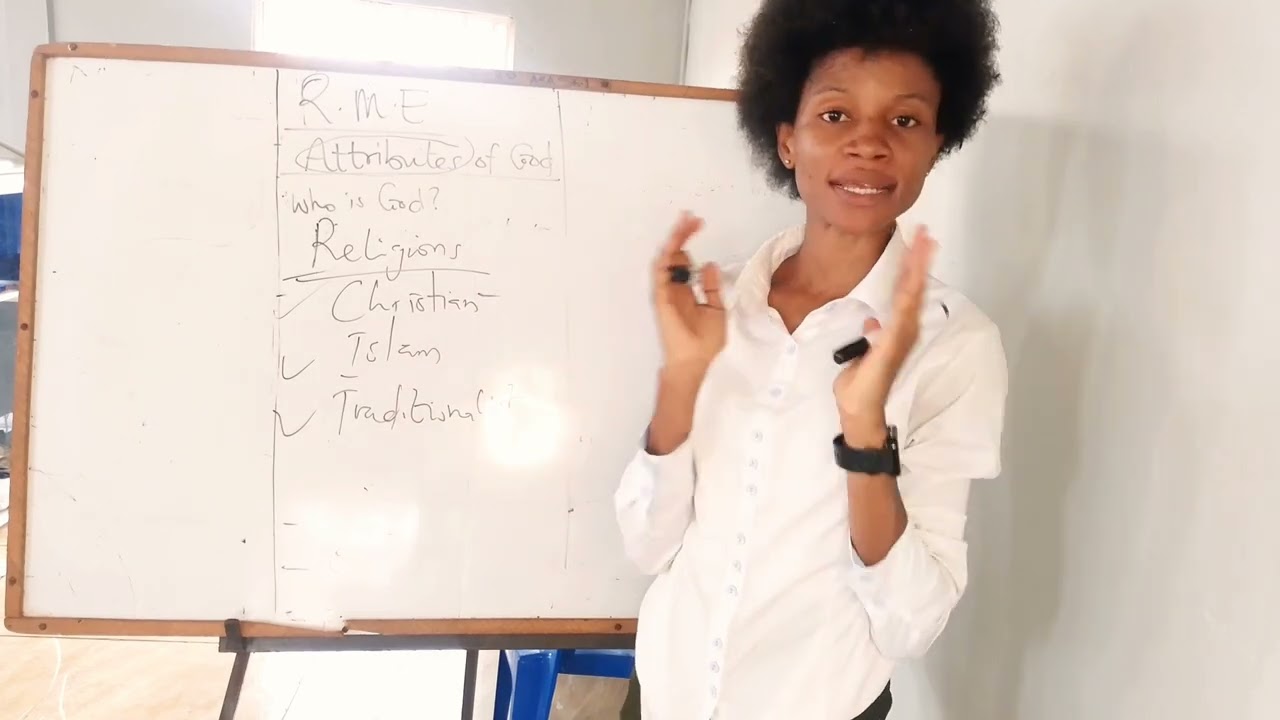 R.M.E
Attributes of God
Who is God?
Religions
Christian
Islam
Traditionalist